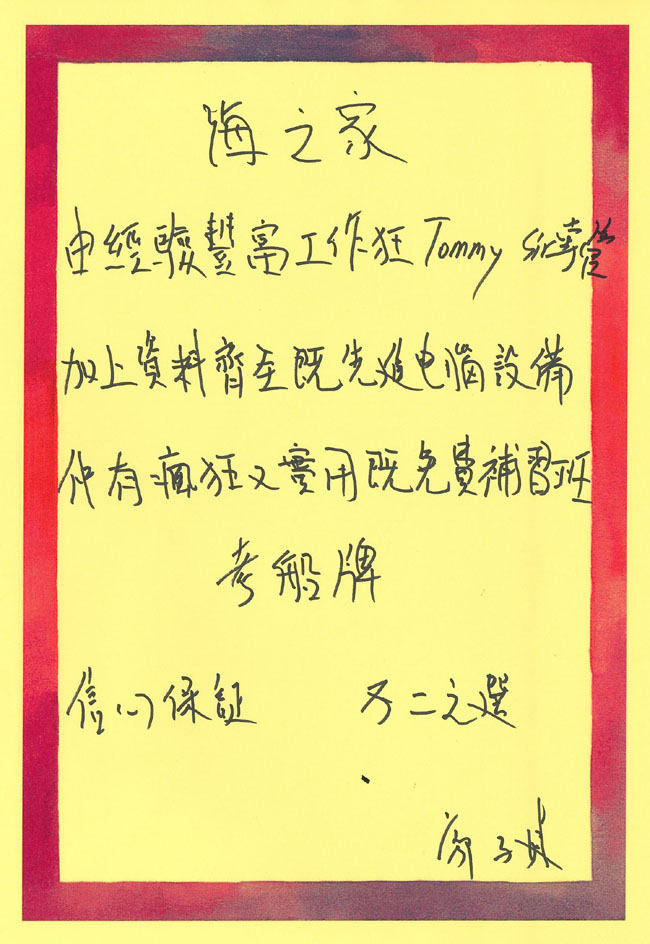 海之家
由經驗豐富工作狂 Tommy Sir 掌管
加上資料齊全既先進电腦設備
仲有瘋狂又實用既免費補習班
考船牌
信心保証 不二之選
廖子